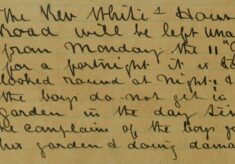 The Rev White's House
Road will be left una
from Monday the 11th
for a fortnight it is to
looked round at night &
the boys do not get in
garden in the day tim
he complains of the boys go
his garden & doing dama